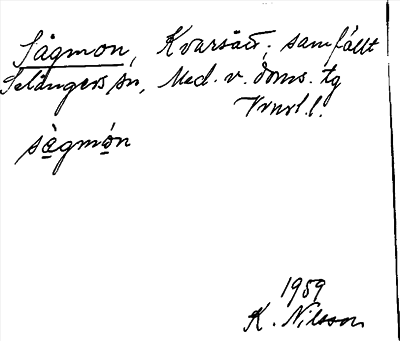 Sågmon, Kvarsätt; samfällt
Selångers sn, Med. v. doms. tg
sågmón
1959
K. Nilsson